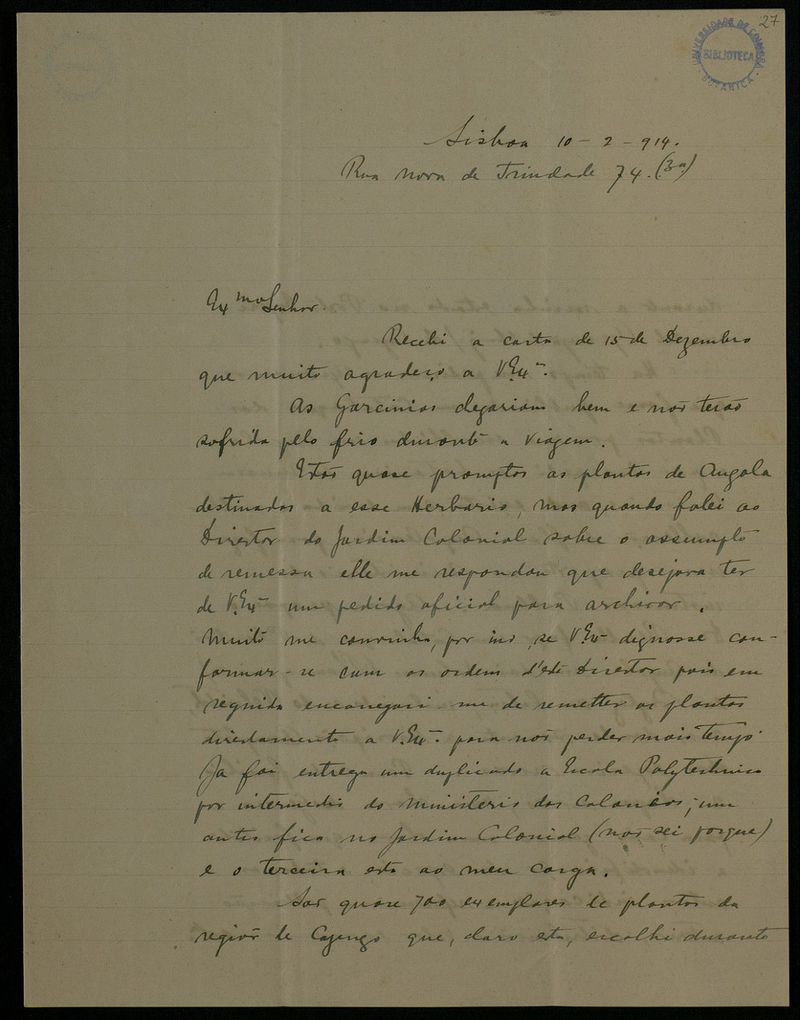 27
UNIVERSIDADE DE COIMBRA
BIBLIOTECA
BOTANICA
Lisboa 10-2-914.
Rua Nova de Trindade 74. (3º)
Exmo Senhor.
Recebi a carta de 15 de Dezembro
que muito agradeço a V.Exª.
As Garcinias chegariam bem e não terão
sofrido pelo frio durante a viagem.
Estão quase promptos as plantas de Angola
destinados a esse Herbario, mas quando falei ao
Director do Jardim Colonial sobre o assumpto
de remessa elle me respondeu que desejava ter
de V.Exª um pedido oficial para archivar.
Muito me convinha, por isso, se V.Exª dignosse con-
formar-se com as ordem d'este Director pois em
seguida encarregari-me de remetter as plantas
directamente a V.Exª. para não perder mais tempo
Ja foi entregue um duplicado a Escola Polytechnica
por intermedio do ministerio das Colonias; um
outro fica no Jardim Colonial (não sei porque)
e o terceiro esta ao meu cargo.
São quase 700 exemplares de plantas da
região de Cazengo que, claro esta, escolhi durante